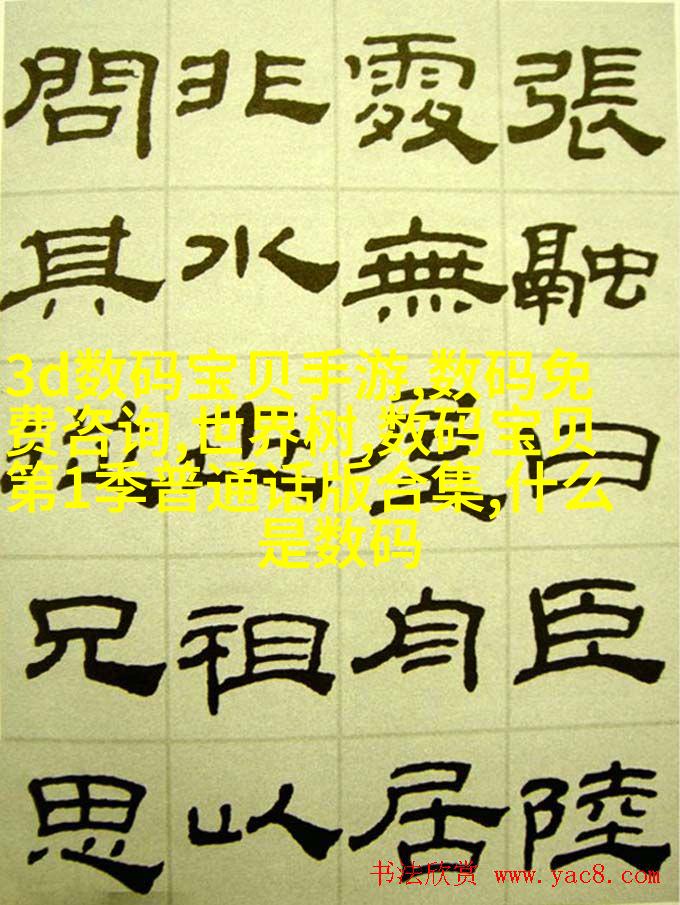 張融曰臣陸
處無屋舟居
非水上祖以
問其兄思
3d数码宝贝手游,数码免
费咨询,世界树,数码宝贝
第1季普通话版合集,什么
是数码
书法欣赏 www.yac8.com